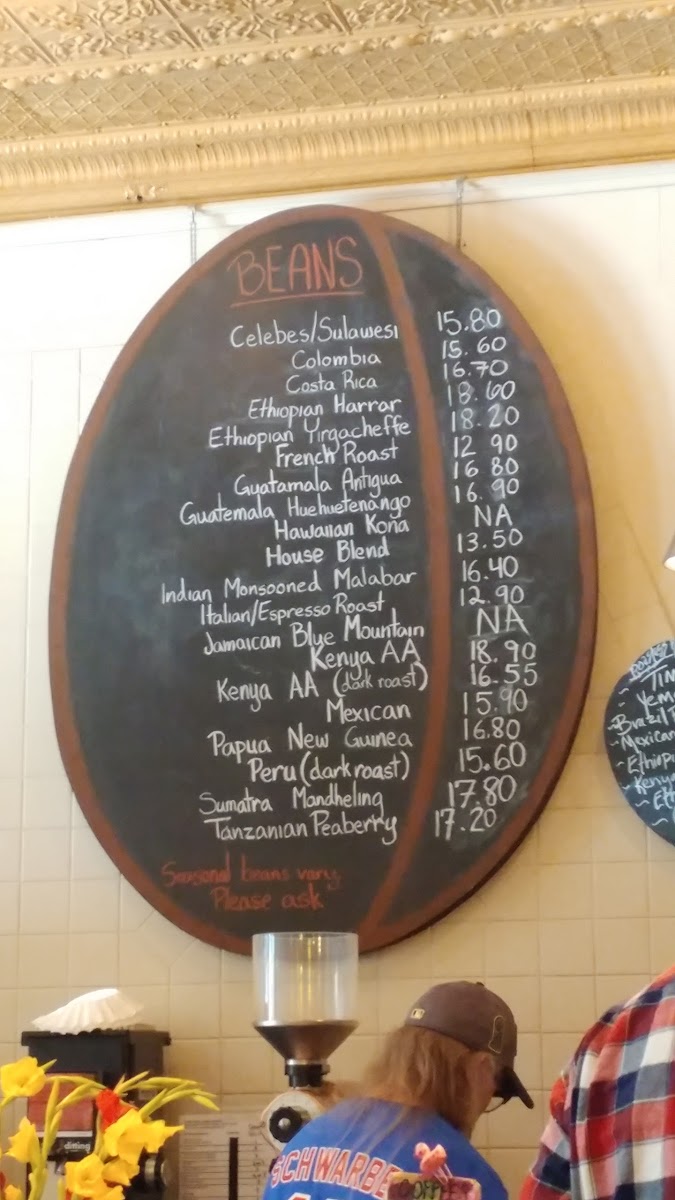 BEANS
Celebes/Sulawesi 15.80
Colombia 15.60
Costa Rica 16.70
Ethiopian Harrar 18.60
Ethiopian Yirgacheffe 18.20
French Roast 12.90
Guatamala Antigua 16.80
Guatemala Huehuetenango 16.90
Hawaiian Kona NA
House Blend 13.50
Indian Monsooned Malabar 16.40
Italian/Espresso Roast 12.90
Jamaican Blue Mountain NA
Kenya AA 18.90
Kenya AA (dark roast) 16.55
Mexican 15.90
Papua New Guinea 16.80
Peru (dark roast) 15.60
Sumatra Mandheling 17.80
Tanzanian Peaberry 17.20
Seasonal beans vary
Please ask
~Mexican
~Kenya
ditting
SCHWARBE